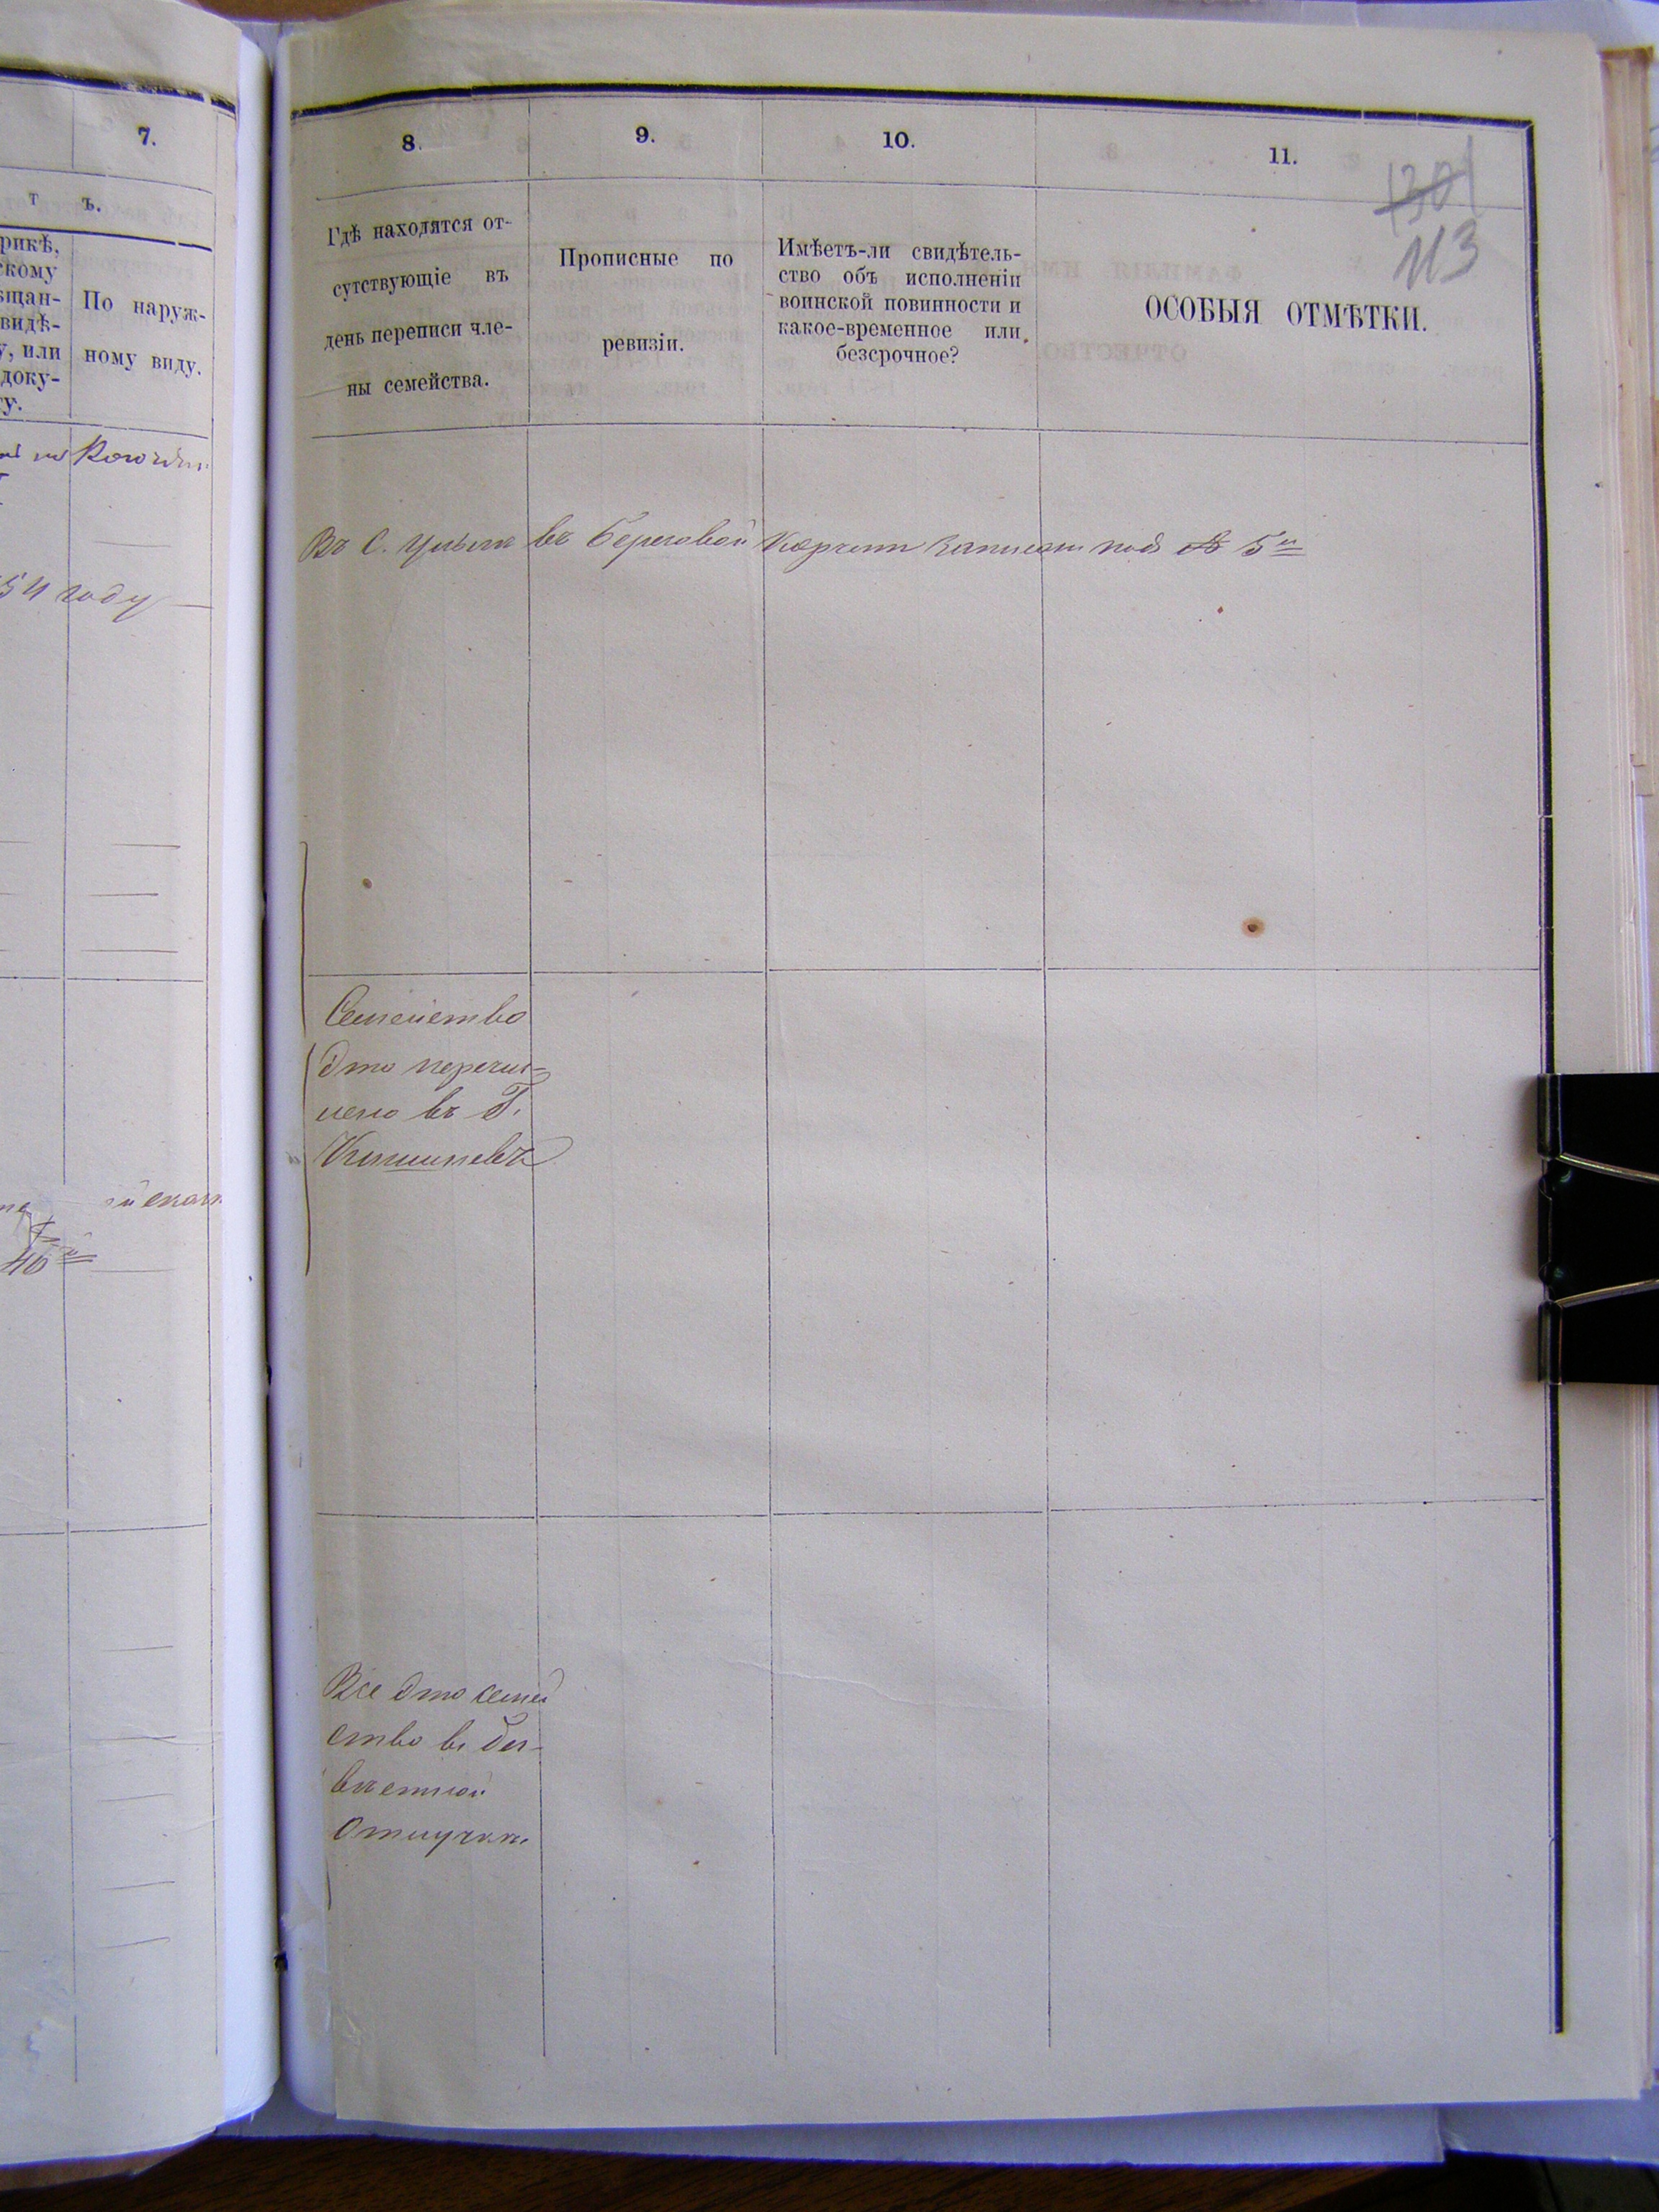 7.
т ъ.
рикѣ,
скому
ѣщан-
видѣ-
у, или
доку-
ту.
По наруж-
ному виду.
54 году
40й
8.
9.
10.
11.
1301
113
Гдѣ находятся от-
сутствующіе въ
день переписи чле-
ны семейства.
Прописные по
ревизіи.
Имѣетъ-ли свидѣтель-
ство объ исполненіи
воинской повинности и
какое-временное или
безсрочное?
ОСОБЫЯ ОТМѢТКИ.
Въ С. въ береговой записан подъ № 5й
Семейство
это перечи-
лено въ Г.
Кишиневъ
Все это семей
ство въ без-
вѣстной
отлучкѣ.